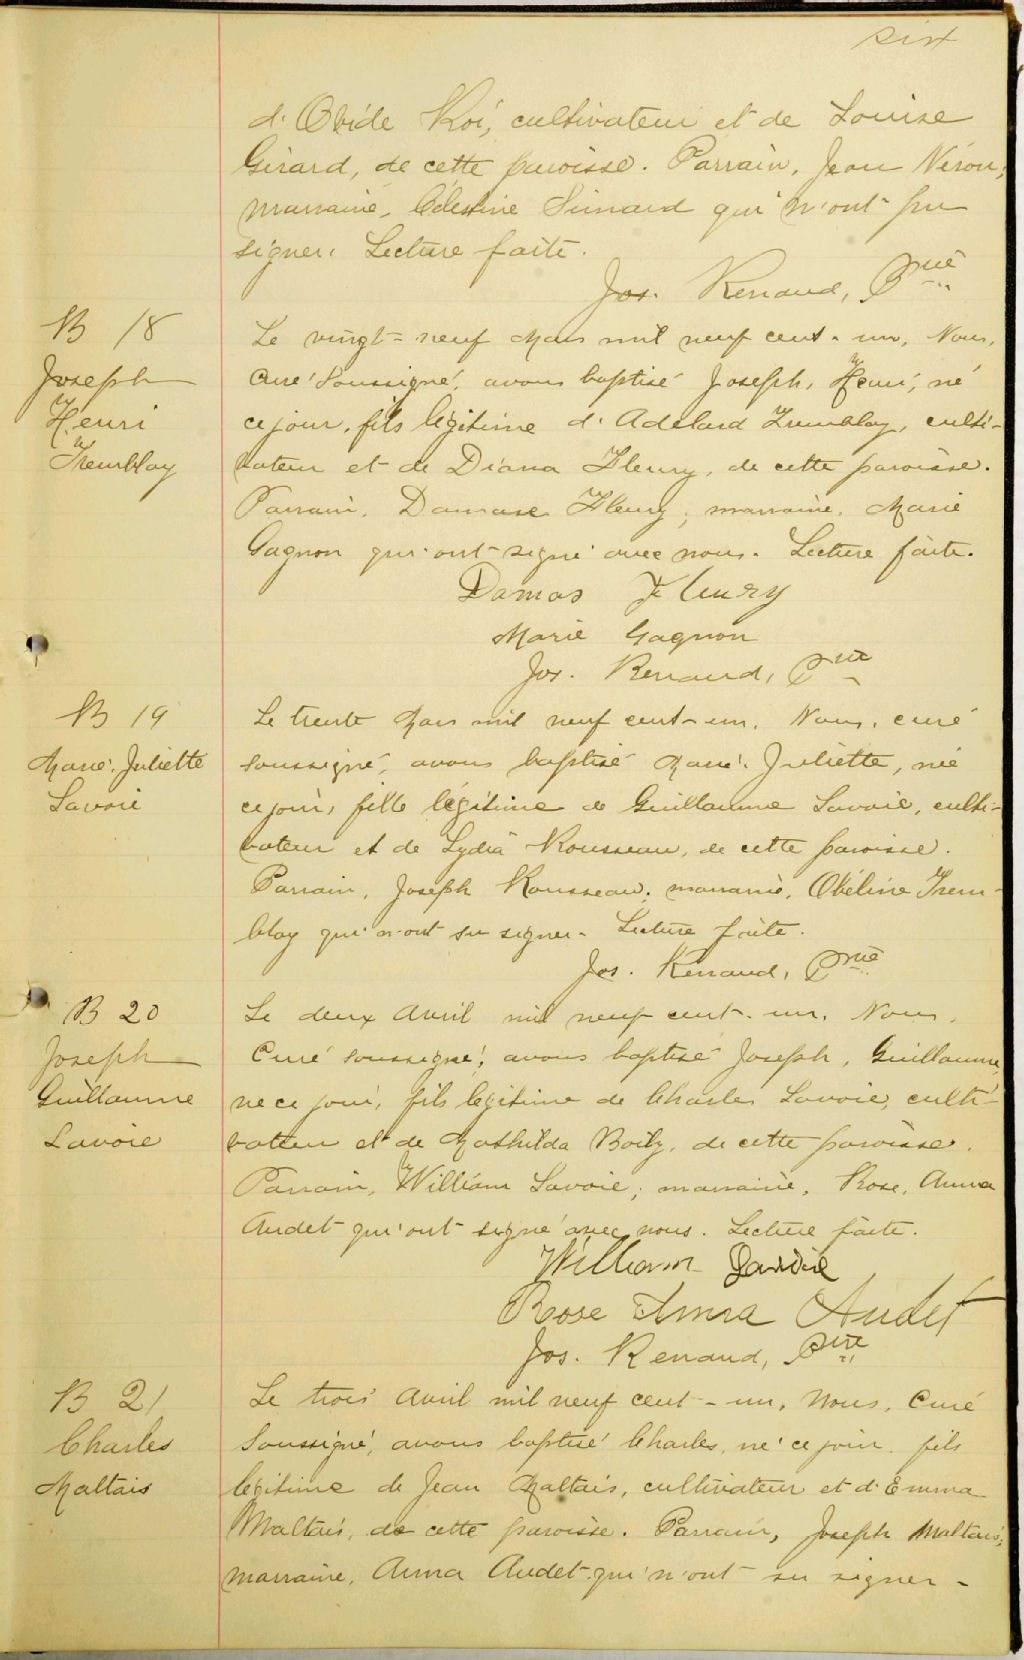 six
d'Ovide Roi, cultivateur et de Louise
Girard, de cette paroisse. Parrain, Jean Néron,
marraine, Célestine Simard qui n'ont pu
signer. Lecture faite.
Jos. Renaud, Ptre
B 18
Joseph
Henri
Tremblay
Le vingt-neuf Mars mil neuf cent-un, Nous,
Curé soussigné, avons baptisé Joseph, Henri, né
ce jour, fils légitime d'Adélard Tremblay, culti-
vateur et de Diana Fleury, de cette paroisse.
Parrain, Damase Fleury, marraine, Marie
Gagnon qui ont signé avec nous. Lecture faite.
Damas Fleury
Marie Gagnon
Jos. Renaud, Ptre
B 19
Marie, Juliette
Lavoie
Le trente Mars mil neuf cent-un. Nous, curé
soussigné, avons baptisé Marie, Juliette, née
ce jour, fille légitime de Guillaume Lavoie, culti-
vateur et de Lydia Rousseau, de cette paroisse.
Parrain, Joseph Rousseau; marraine, Obéline Trem-
blay qui n'ont su signer. Lecture faite.
Jos. Renaud, Ptre
B 20
Joseph
Guillaume
Lavoie
Le deux Avril mil neuf cent-un, Nous,
Curé soussigné, avons baptisé Joseph, Guillaume,
né ce jour, fils légitime de Charles Lavoie, culti-
vateur et de Mathilda Boily, de cette paroisse.
Parrain, William Lavoie; marraine, Rose, Anna
Audet qui ont signé avec nous. Lecture faite.
William Lavoie
Rose Anna Audet
Jos. Renaud, Ptre
B 21
Charles
Maltais
Le trois Avril mil neuf cent-un, Nous, Curé
Soussigné, avons baptisé Charles, né ce jour, fils
légitime de Jean Maltais, cultivateur et d'Emma
Maltais, de cette paroisse. Parrain, Joseph Maltais;
marraine, Anna Audet qui n'ont su signer-